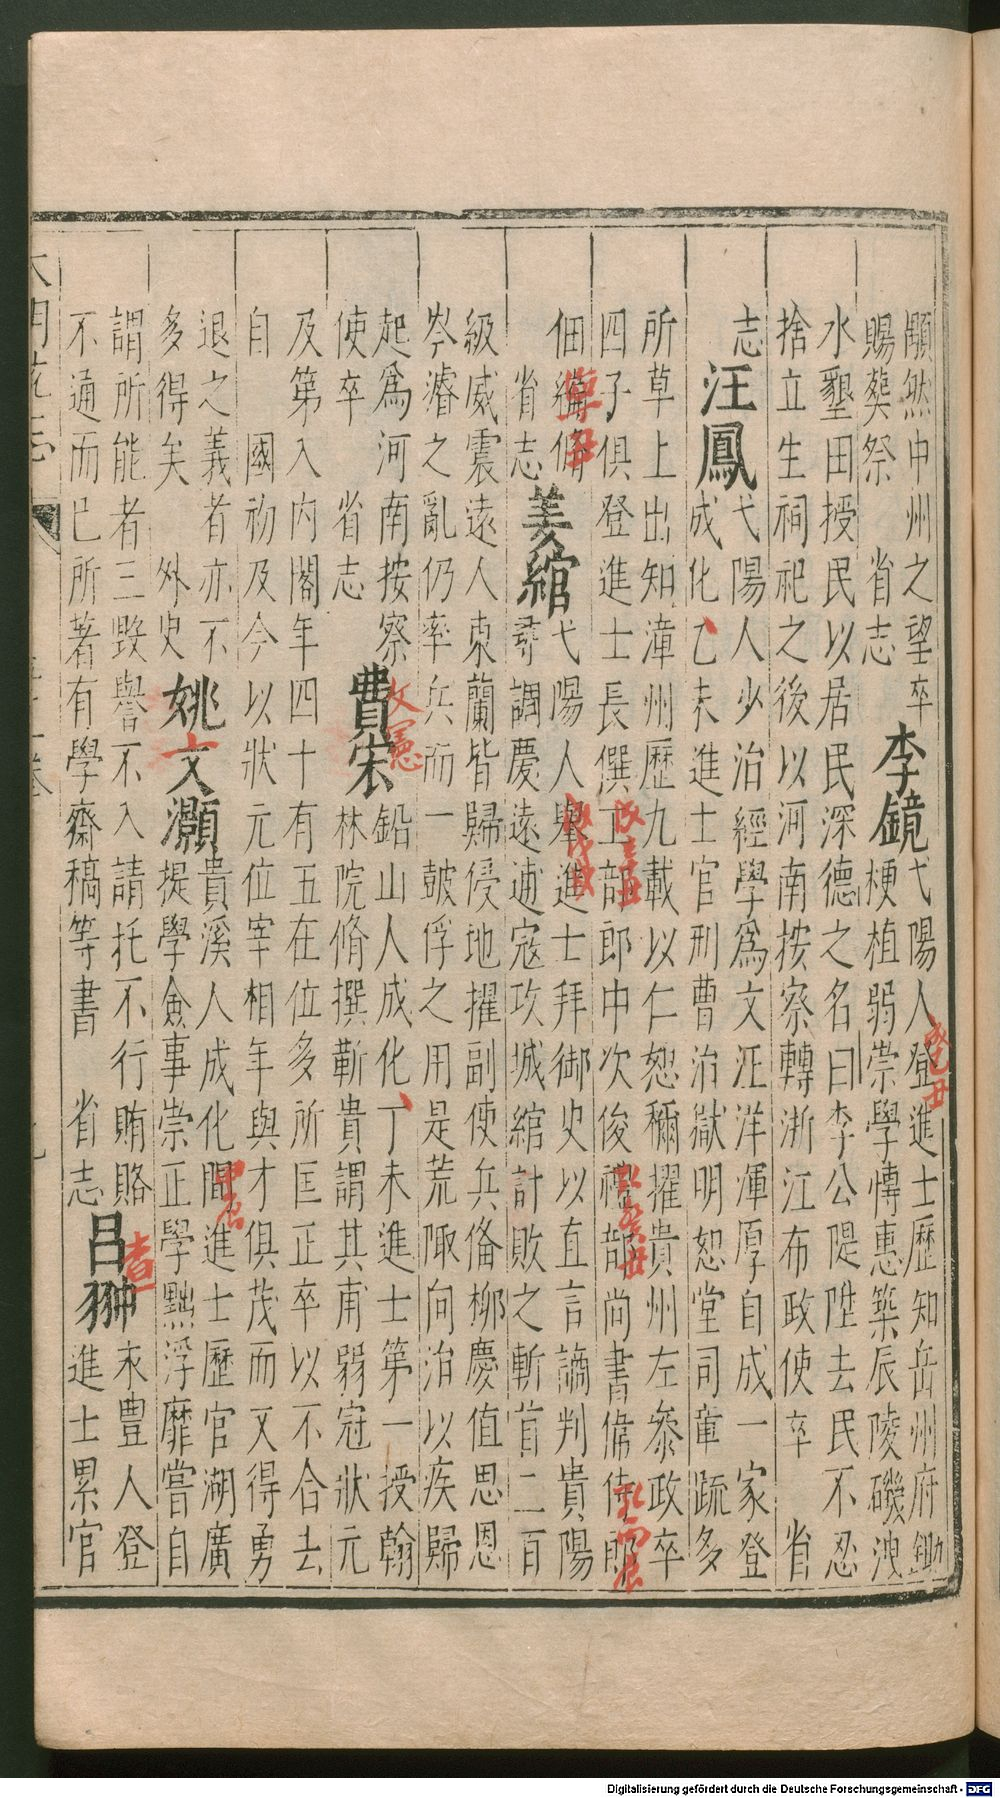 顒然中州之望卒
賜葬祭　省志
李鏡
弋陽人登進士歷知岳州府鋤
梗植弱崇學愽惠築辰陵磯洩
水墾田授民以居民深德之名曰李公隄陞去民不忍
捨立生祠祀之後以河南按察轉浙江布政使卒　省
志
汪鳳
弋陽人少治經學爲文汪洋渾厚自成一家登
成化乙未進士官刑曹治獄明恕堂司章疏多
所草上出知漳州歷九載以仁恕稱擢貴州左叅政卒
四子俱登進士長僎工部郎中次俊禮部尚書偉侍郎
佃編脩
省志
姜綰
弋陽人舉進士拜御史以直言謫判貴陽
尋調慶遠逋寇攻城綰計敗之斬首二百
級威震遠人東蘭皆歸侵地擢副使兵備柳慶值思恩
岑濬之亂仍率兵而一鼓俘之用是荒陬向治以疾歸
起爲河南按察
使卒　省志
費宏
鉛山人成化丁未進士第一授翰
林院脩撰靳貴謂其甫弱冠狀元
及第入内閣年四十有五在位多所匡正卒以不合去
自　國初及今以狀元位宰相年與才俱茂而又得勇
退之義者亦不
多得矣　外史
姚文灝
貴溪人成化間進士歷官湖廣
提學僉事崇正學黜浮靡嘗自
謂所能者三毀譽不入請托不行賄賂
不通而已所著有學齋稿等書　省志
呂翀
永豐人登
進士累官
成己丑
甲辰
查
Digitalisierung gefördert durch die Deutsche Forschungsgemeinschaft - DFG